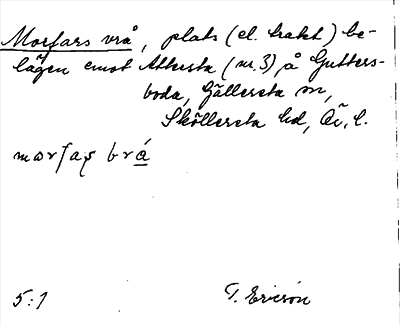 Morfars vrå, plats (el. trakt) be-
lägen emot Attersta (nr. 3) å Gutters-
boda, Gällersta sn,
Sköllersta hd, Ö. l.
morfaʂ brá
5:1 T. Ericson